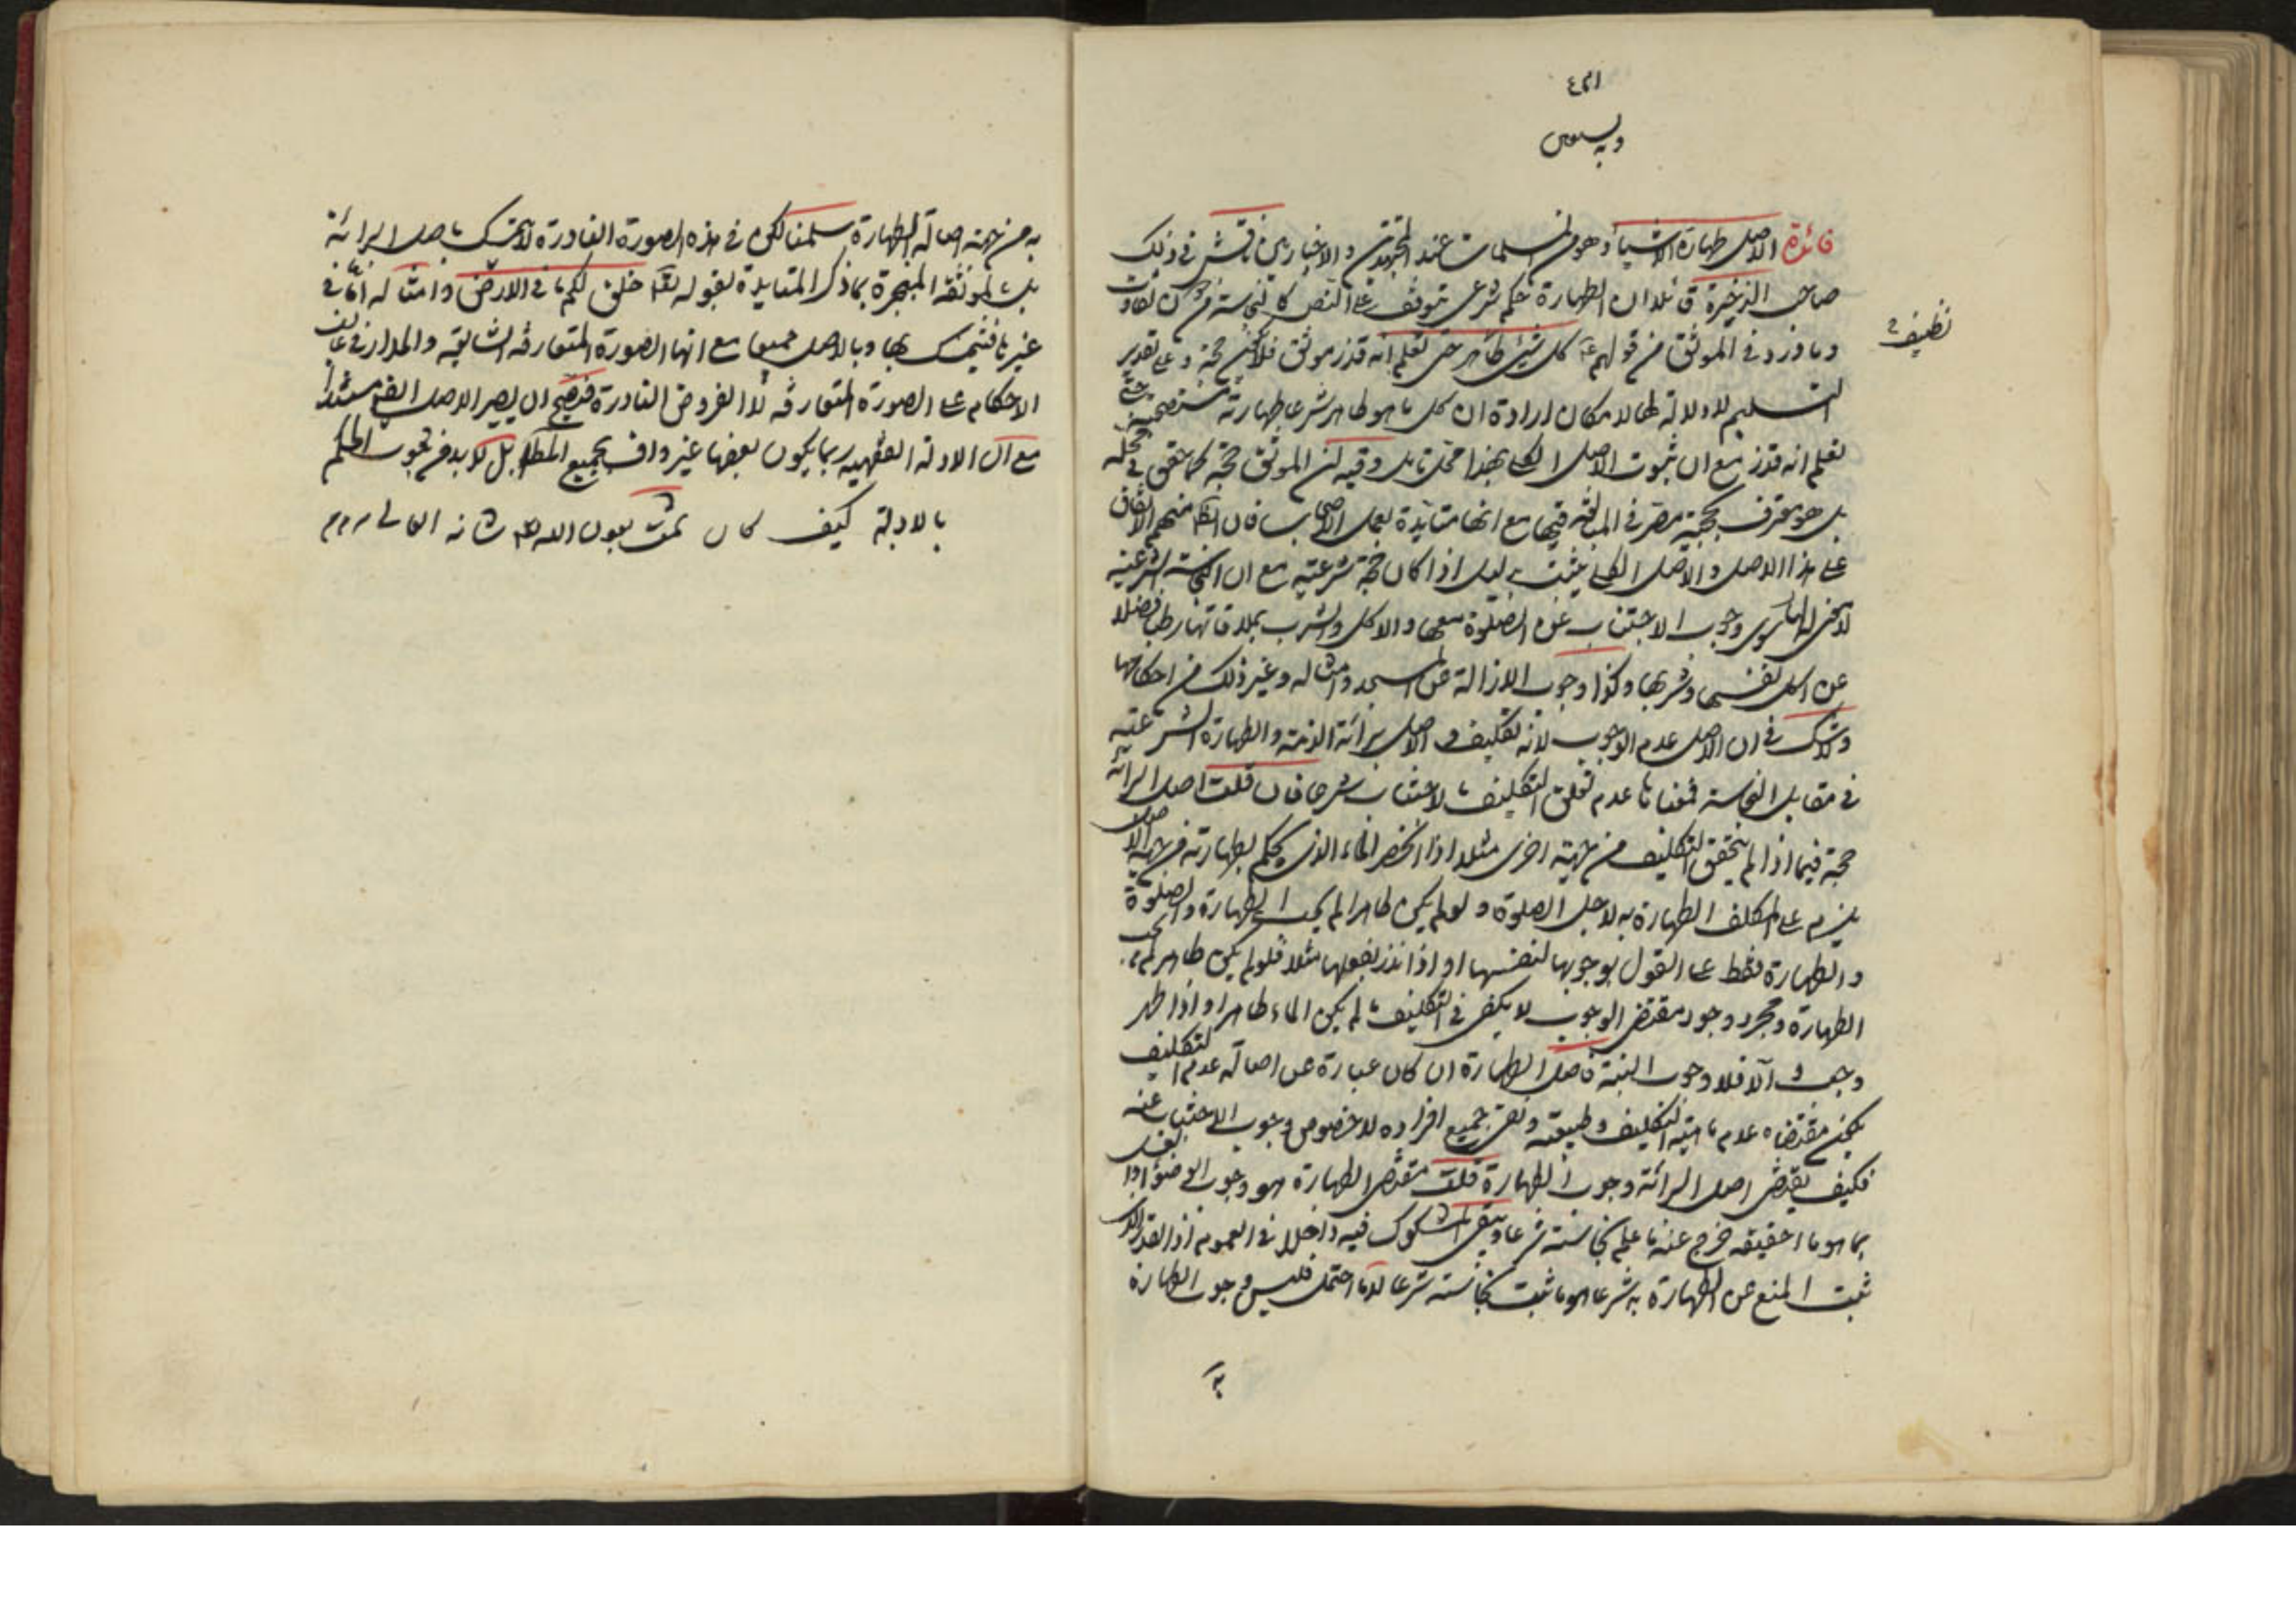 وبه نستعين
فائدة الاصل طهارة الاشياء وهو من المسلمات عند المجتهدين والاخباريين ناقش في ذلك
صاحب الذخيرة قائلا ان الطهارة حكم شرعى يتوقف على النص كالنجاسة من دون تفاوت
وما ورد في الموثق من قولهم ع كل شيئ طاهر حتى تعلم انه قذر موثق فلا يكون حجة وعلى تقدير
نظيف
التسليم لا دلالة لها لامكان ارادة ان كل ما هو طاهر شرعا طهارته مستصحبة حتى
تعلم انه قذر مع ان ثبوت الاصل الكلى بهذا محل تامل وفيه ان الموثق حجة كما حقق في محله
بل هو معترف بحجيته مصر في المبالغة فيها مع انها متايدة بعمل الاصحاب فان الظاهر منهم الاتفاق
على هذا الاصل والاصل الكلى يثبت بدليل اذا كان حجة شرعية مع ان النجاسة الشرعية
لا معنى لها سوى وجوب الاجتناب عن الصلوة معها والاكل والشرب بملاقاتها رطبا فضلا
عن اكل نفسها وشربها وكذا وجوب الازالة عن المسجد وامثاله وغير ذلك من احكامها
ولا شك في ان الاصل عدم الوجوب لانه تكليف والاصل برائة الذمة والطهارة الشرعية
في مقابل النجاسة فمعناها عدم تعلق التكليف بالاجتناب شرعا فان قلت اصل البرائة
حجة فيما اذا لم يتحقق التكليف من جهة اخرى مثلا اذا انحصر الماء الذى يحكم بطهارته من جهة الاصل
يلزم على المكلف الطهارة به لاجل الصلوة ولو لم يكن طاهرا لم يجب الطهارة والصلوة
والطهارة فقط على القول بوجوبها لنفسها او اذا نذر بفعلها مثلا فلو لم يكن طاهر لم يجب
الطهارة ومجرد وجود مقتضى الوجوب لا يكفى في التكليف ما لم يكن الماء طاهرا واذا طهر
وجب والا فلا وجوب البتة فاصل الطهارة ان كان عبارة عن اصالة عدم التكليف
يكون مقتضاه عدم ماهية التكليف وطبيعته ونفى جميع افراده لا خصوص وجوب الاجتناب عنه
فكيف يقتضى اصل البرائة وجوب الطهارة قلت مقتضى الطهارة هو وجوب الوضوء او الغسل
بما هو ماء حقيقة خرج عنه ما علم نجاسته شرعا وبقى المشكوك فيه داخلا في العموم اذ القدر الذى
ثبت المنع عن الطهارة به شرعا هو ما ثبت نجاسته شرعا لا ما احتمل فليس وجوب الطهارة
به
به من جهة اصالة الطهارة سلمنا لكن في هذه الصورة النادرة لا يتمسك باصل البرائة
بل بالموثقة المنجبرة بما ذكر المتايدة بقوله تعالى خلق لكم ما في الارض وامثاله اما في
غيرها فيتمسك بها وبالاصل جميعا مع انها الصورة المتعارفة الشايعة والمدار في غالب
الاحكام على الصورة المتعارفة لا الفروض النادرة فيصح ان يصير الاصل ايضا مستندا
مع ان الادلة الفقهية ربما يكون بعضها غير واف بجميع المطلوب بل لا بد من ثبوت الحكم
بالادلة كيف كان تمت بعون الله